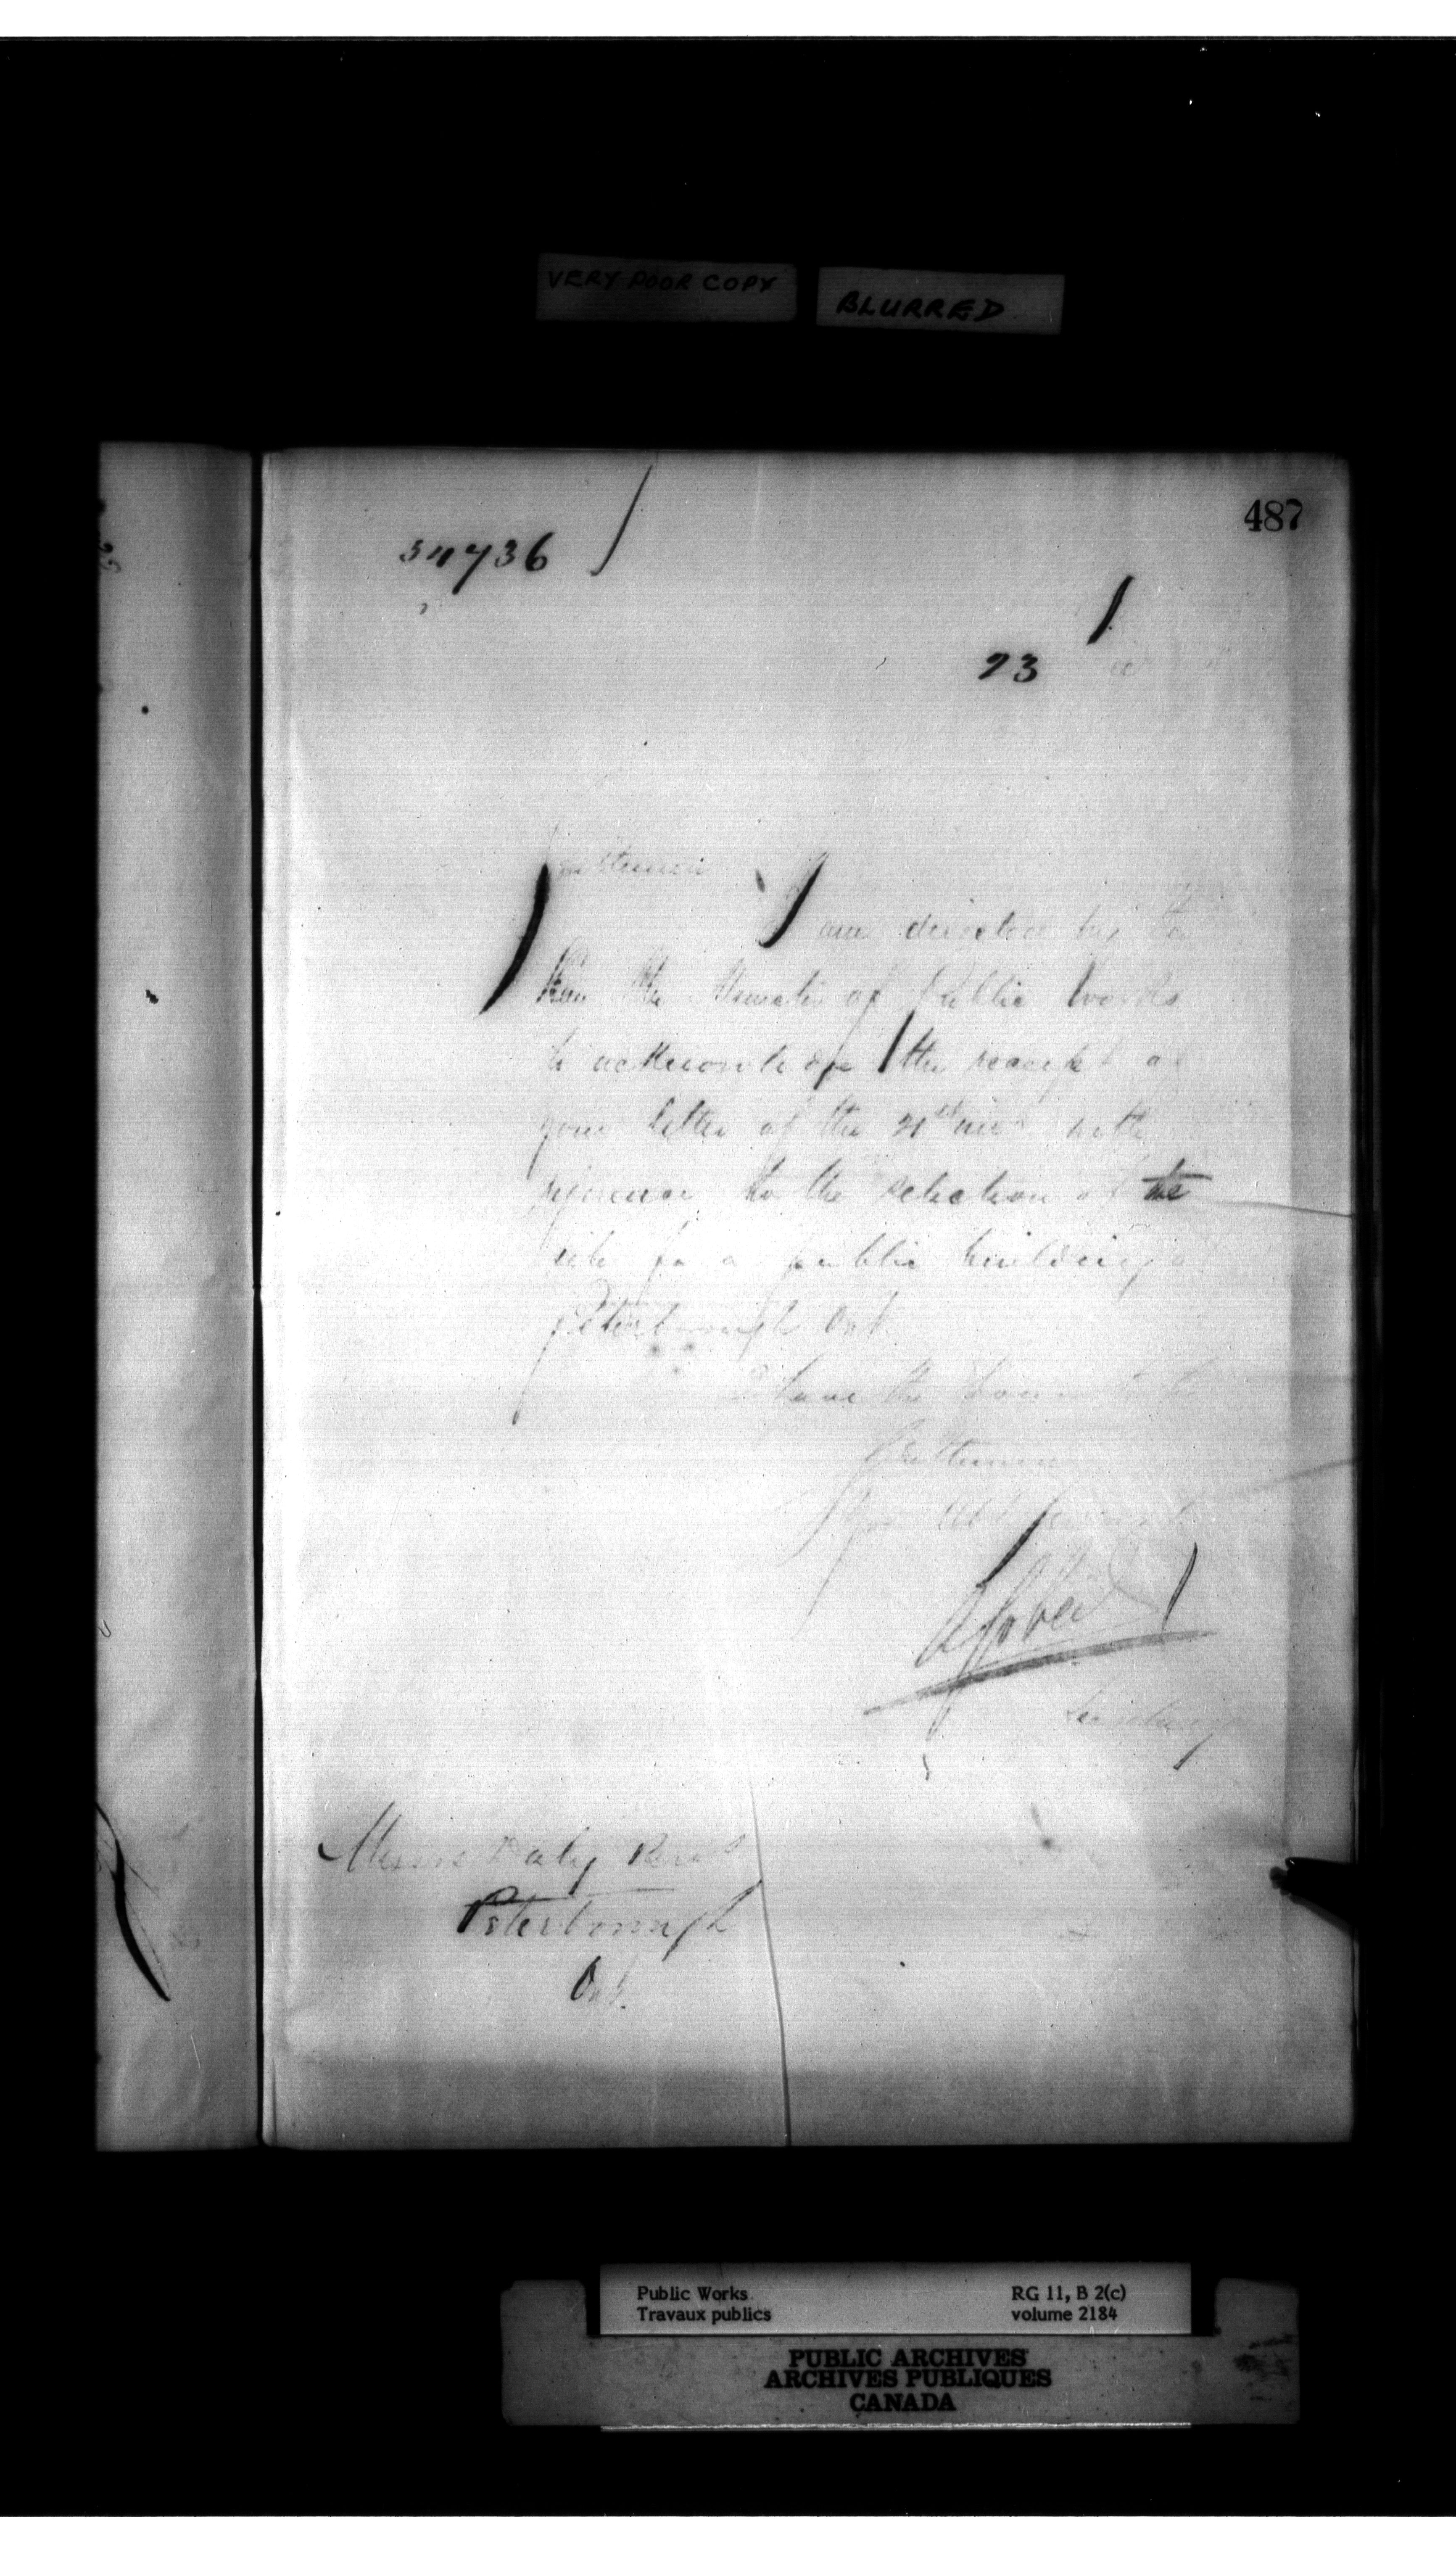 VERY POOR COPY
BLURRED
487
23
Gentlemen
I am directed by the
Hon the Minister of Public Works
to acknowledge the receipt of
your letter of the 21st inst with
reference to the selection of the
site for a public building
Peterborough Ont.
I have the honor to be
Gentlemen
Your obt servant
Secretary
Messrs Daly
Peterborough
Ont.
Public Works
Travaux publics
RG 11, B 2(c)
volume 2184
PUBLIC ARCHIVES
ARCHIVES PUBLIQUES
CANADA